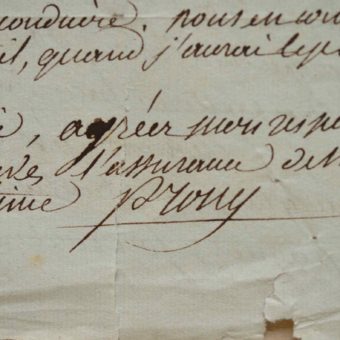 conduire. nous en con
il, quand j'aurai le p
, agréer mon respe
l'assurance de
time Prony